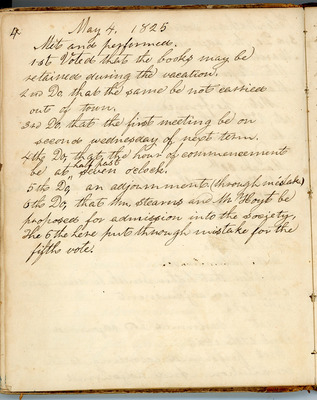 4.
May 4. 1825
Met and performed.
1st Voted that the books may be
retained during the vacation.
2nd Do. that the same be not carried
out of town.
3rd Do, that the first meeting be on
second wednesday of next term.
4th Do, that, the hour of commencement
half past
be at seven o'clock.
5th Do an adjournment. (through mistake)
6th Do, that Wm. Stearns and Mr Hoyt be
proposed for admission into the society,
The 6th here put through mistake for the
fifths vote.